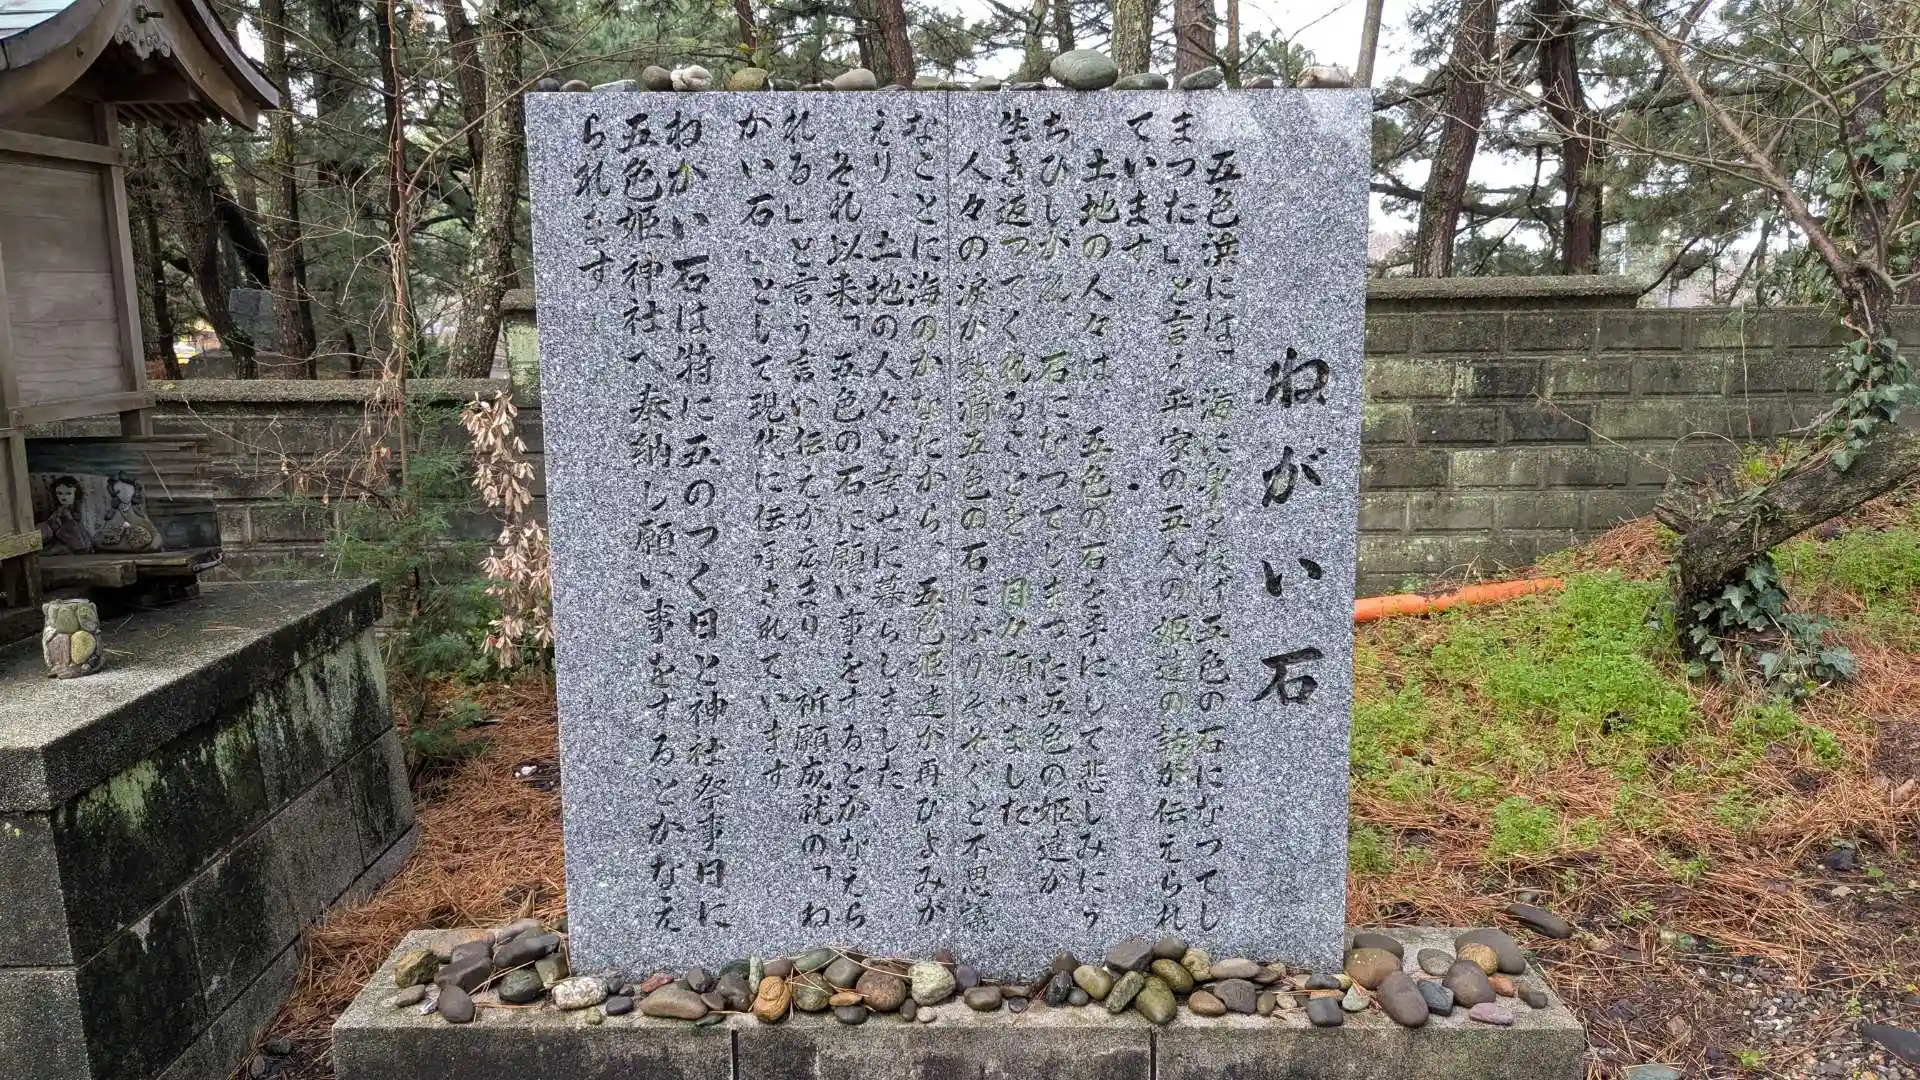 ねがい石
五色浜には「海に身を投げ五色の石になつてし
まつた」と言う平家の五人の姫達の話が伝えられ
ています。
土地の人々は、五色の石を手にして悲しみにう
ちひしがれ、石になつてしまつた五色の姫達が、
生き返つてくれることを、日々願いました
人々の涙が数滴五色の石にふりそそぐと不思議
なことに海のかなたから、五色姫達が再びよみが
えり、土地の人々と幸せに暮らしました。
それ以来「五色の石に願い事をするとかなえら
れる」と言う言い伝えが広まり、祈願成就の「ね
がい石」として現代に伝承されています
ねがい石は特に五のつく日と神社祭事日に
五色姫神社へ奉納し願い事をするとかなえ
られます